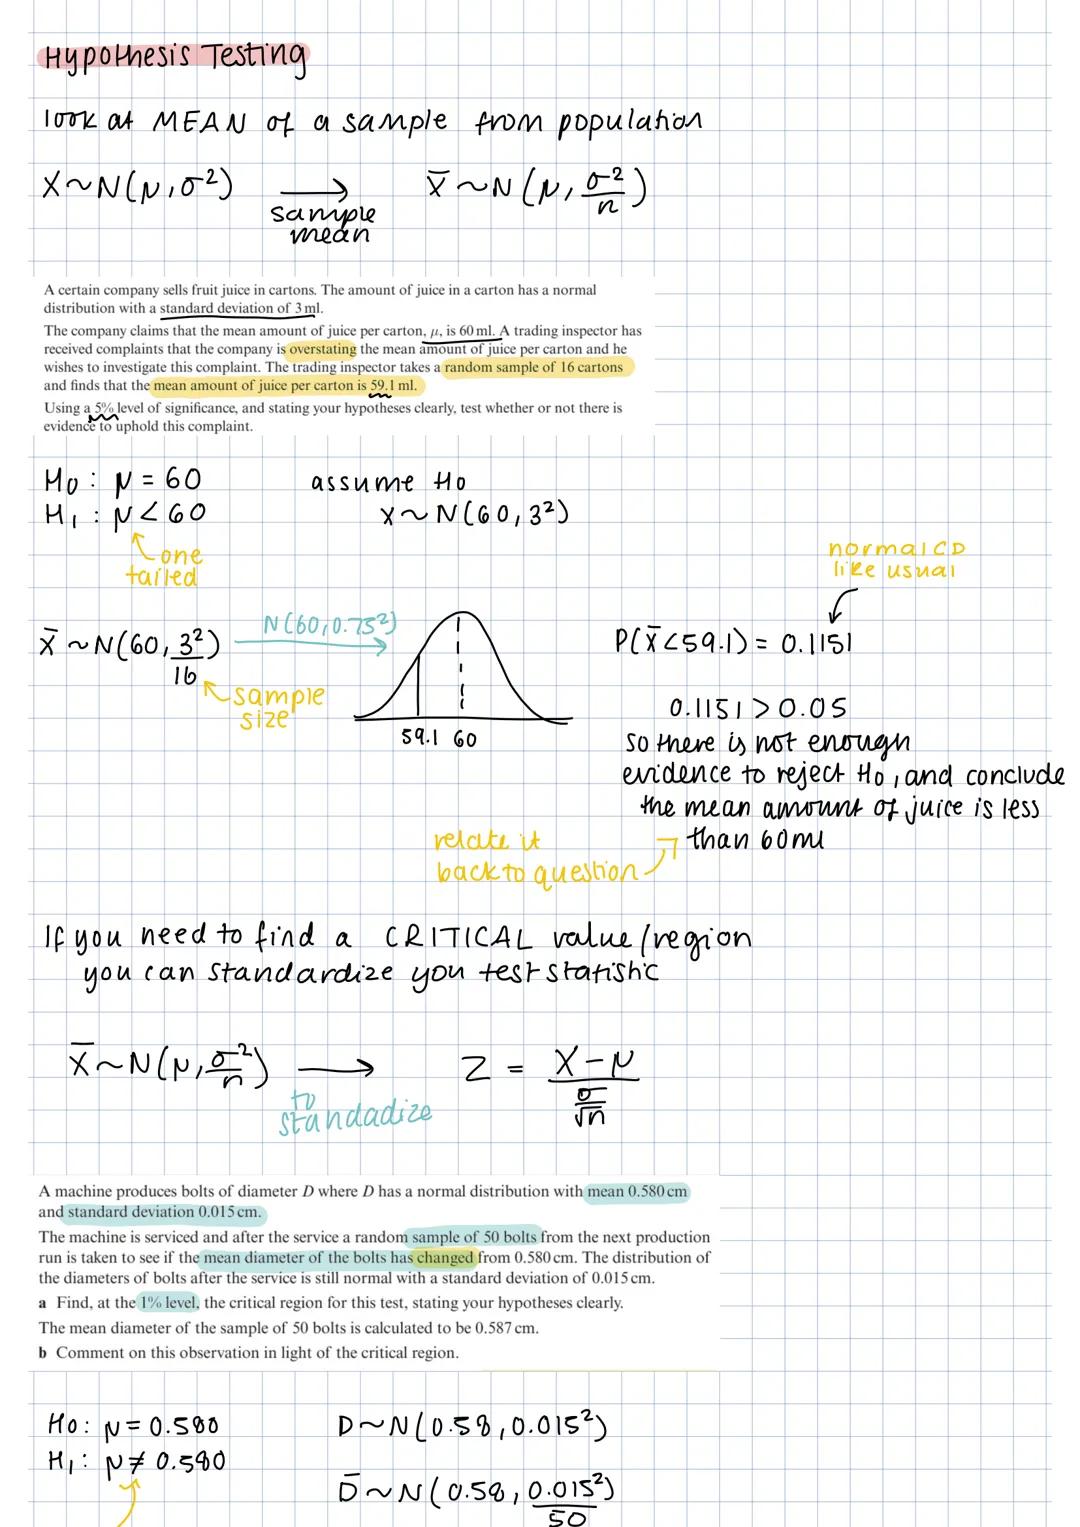 Hypothesis Testing
look at MEAN of a sample from population
X~N(μ,σ²) → X̄~N(μ,σ²/n)
sample
mean
A certain company sells fruit juice in cartons. The amount of juice in a carton has a normal
distribution with a standard deviation of 3 ml.
The company claims that the mean amount of juice per carton, μ, is 60 ml. A trading inspector has
received complaints that the company is overstating the mean amount of juice per carton and he
wishes to investigate this complaint. The trading inspector takes a random sample of 16 cartons
and finds that the mean amount of juice per carton is 59.1 ml.
Using a 5% level of significance, and stating your hypotheses clearly, test whether or not there is
evidence to uphold this complaint.
H₀: μ = 60 assume H₀
H₁: μ < 60 X~N(60,3²)
one
tailed
normalCD
like usual
X̄~N(60, 3²/16) N(60,0.75²)
sample
size
59.1 60
P(X̄<59.1) = 0.1151
0.1151 > 0.05
so there is not enough
evidence to reject H₀, and conclude
the mean amount of juice is less
than 60ml
relate it
back to question
If you need to find a CRITICAL value/region
you can standardize you test statistic
X̄~N(μ,σ²/n) → Z = (X-μ)/(σ/√n)
to
standadize
A machine produces bolts of diameter D where D has a normal distribution with mean 0.580 cm
and standard deviation 0.015 cm.
The machine is serviced and after the service a random sample of 50 bolts from the next production
run is taken to see if the mean diameter of the bolts has changed from 0.580 cm. The distribution of
the diameters of bolts after the service is still normal with a standard deviation of 0.015 cm.
a Find, at the 1% level, the critical region for this test, stating your hypotheses clearly.
The mean diameter of the sample of 50 bolts is calculated to be 0.587 cm.
b Comment on this observation in light of the critical region.
H₀: μ = 0.580 D~N(0.58,0.015²)
H₁: μ ≠ 0.580
D̄~N(0.58, 0.015²/50)